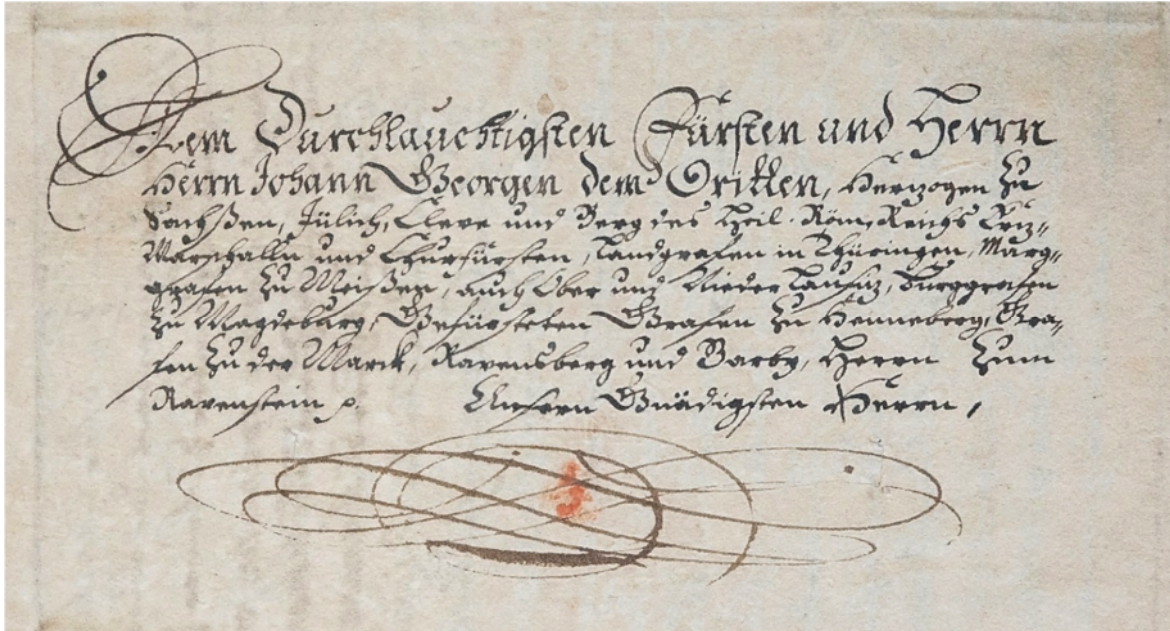 Dem Durchlauchtigsten Fürsten und Herrn
Herrn Johann Georgen dem Dritten, Herzogen zu
Sachßen, Jülich, Cleve und Berg des Heil. Röm. Reichs Ertz-
Marschalln und Churfürsten, Landgrafen in Thüringen, Marg-
grafen zu Meißen, auch Ober und Nieder Lausitz, Burggrafen
zu Magdeburg, Gefürsteten Grafen zu Henneberg, Gra-
fen zu der Marck, Ravensberg und Barby, Herrn zum
Ravenstein p. Unsern Gnädigsten Herrn,
3